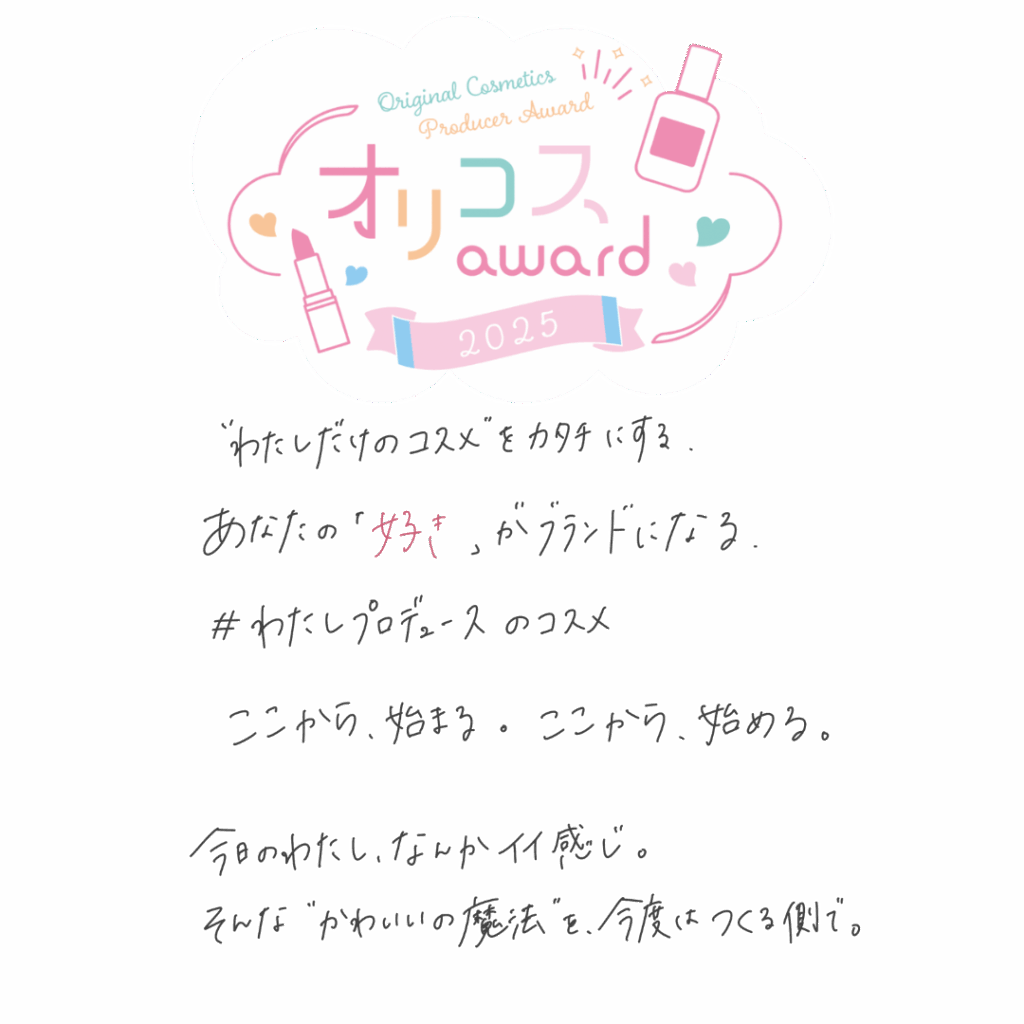 Original Cosmetics
Producer Award
オリコス
award
2025
“わたしだけのコスメ”をカタチにする.
あなたの「好き」がブランドになる.
#わたしプロデュースのコスメ
ここから、始まる。ここから、始める。
今日のわたし、なんかイイ感じ。
そんな“かわいいの魔法”を、今度はつくる側で。